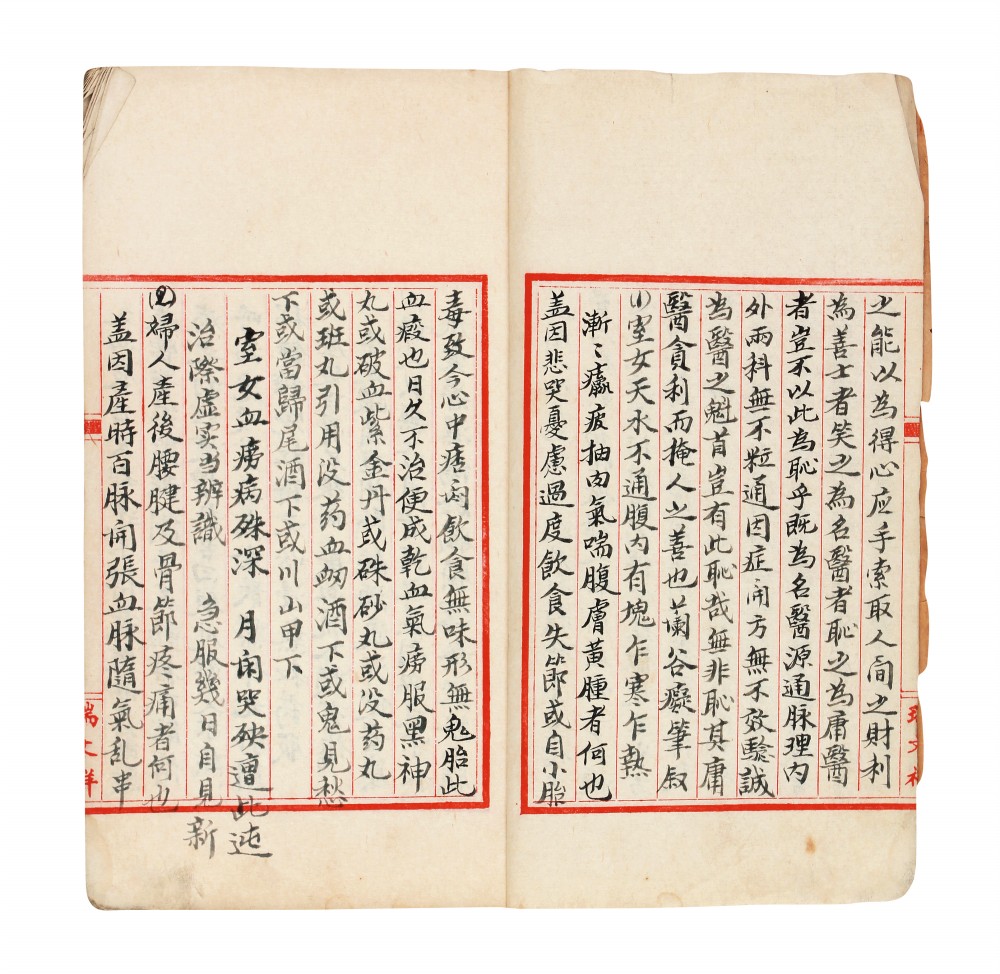 之能以為得心应手索取人间之財利
為善士者笑之為名醫者恥之為庸醫
者豈不以此為恥乎既為名醫源通脉理内
外兩科無不粒通因症闹方無不效驗誠
為醫之魁首豈有此恥哉無非恥其庸
醫貪利而掩人之善也蘭谷癡肇叔
(1)室女天水不通腹内有塊乍寒乍熱
漸〻瀛疲抽肉氣喘腹膚黃腫者何也
盖因悲哭憂慮過度飲食失節或自小胎
毒致今心中痞闷飲食無味形無鬼胎此
血瘕也日久不治便成乾血氣痨服黑神
丸或破血紫金丹或硃砂丸或没药丸
或班丸引用没药血竭酒下或鬼見愁
下或當歸尾酒下或川山甲下
室女血痨病殊深 月闲哭殃遭此迍
治際虚实当辨識 急服幾日自見新
(2)婦人產後腰腱及骨節疼痛者何也
盖因產時百脉闹張血脉隨氣乱串
瑞文祥